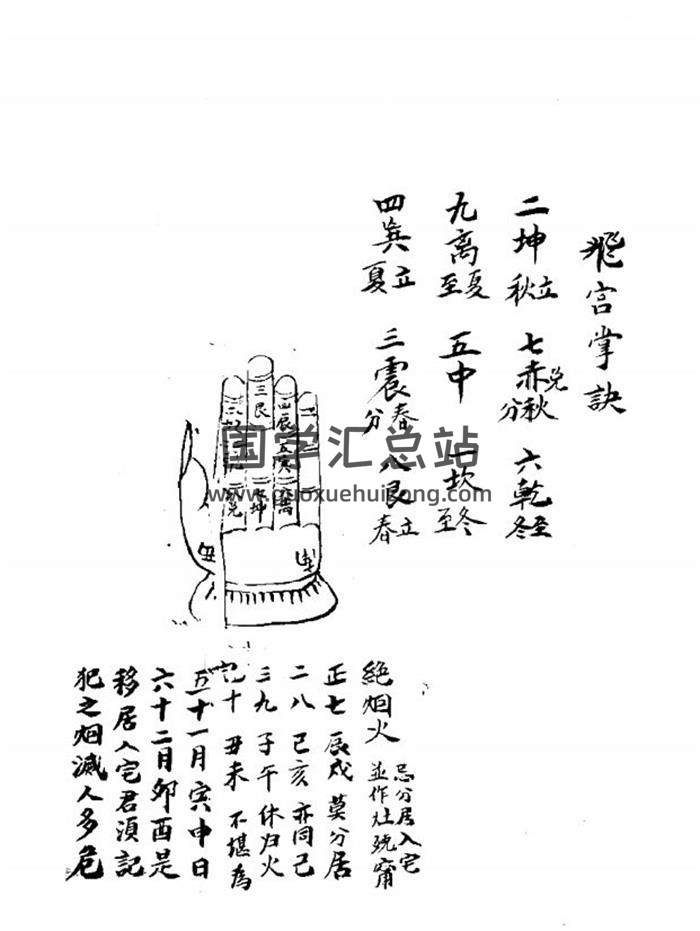 飛宫掌訣
二坤 立秋 七赤 兑秋分 六乾 立冬
九离 夏至 五中 一坎 冬至
四巽 立夏 三震 春分 八艮 立春
三艮
四辰 五亥
坤
兑
国学汇总站
www.guoxuehuizong.com
絕烟火 忌分居入宅並作灶
正七 辰戍 莫分居
二八 已亥 亦同己
三九 子午 休归火
十 丑未 不堪為
五十一月寅申日
六十二月夘酉是
移居入宅君須記
犯之烟滅人多危